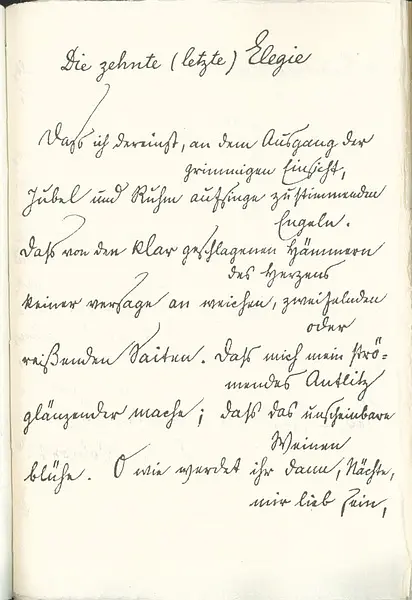 Die zehnte (letzte) Elegie
Dass ich dereinst, an dem Ausgang der
grimmigen Einsicht,
Jubel und Ruhm aufsinge zustimmenden
Engeln.
Dass von den klar geschlagenen Hämmern
des Herzens
keiner versage an weichen, zweifelnden
oder
reißenden Saiten. Dass mich mein strö-
mendes Antlitz
glänzender mache; dass das unscheinbare
Weinen
blühe. O wie werdet ihr dann, Nächte,
mir lieb sein,